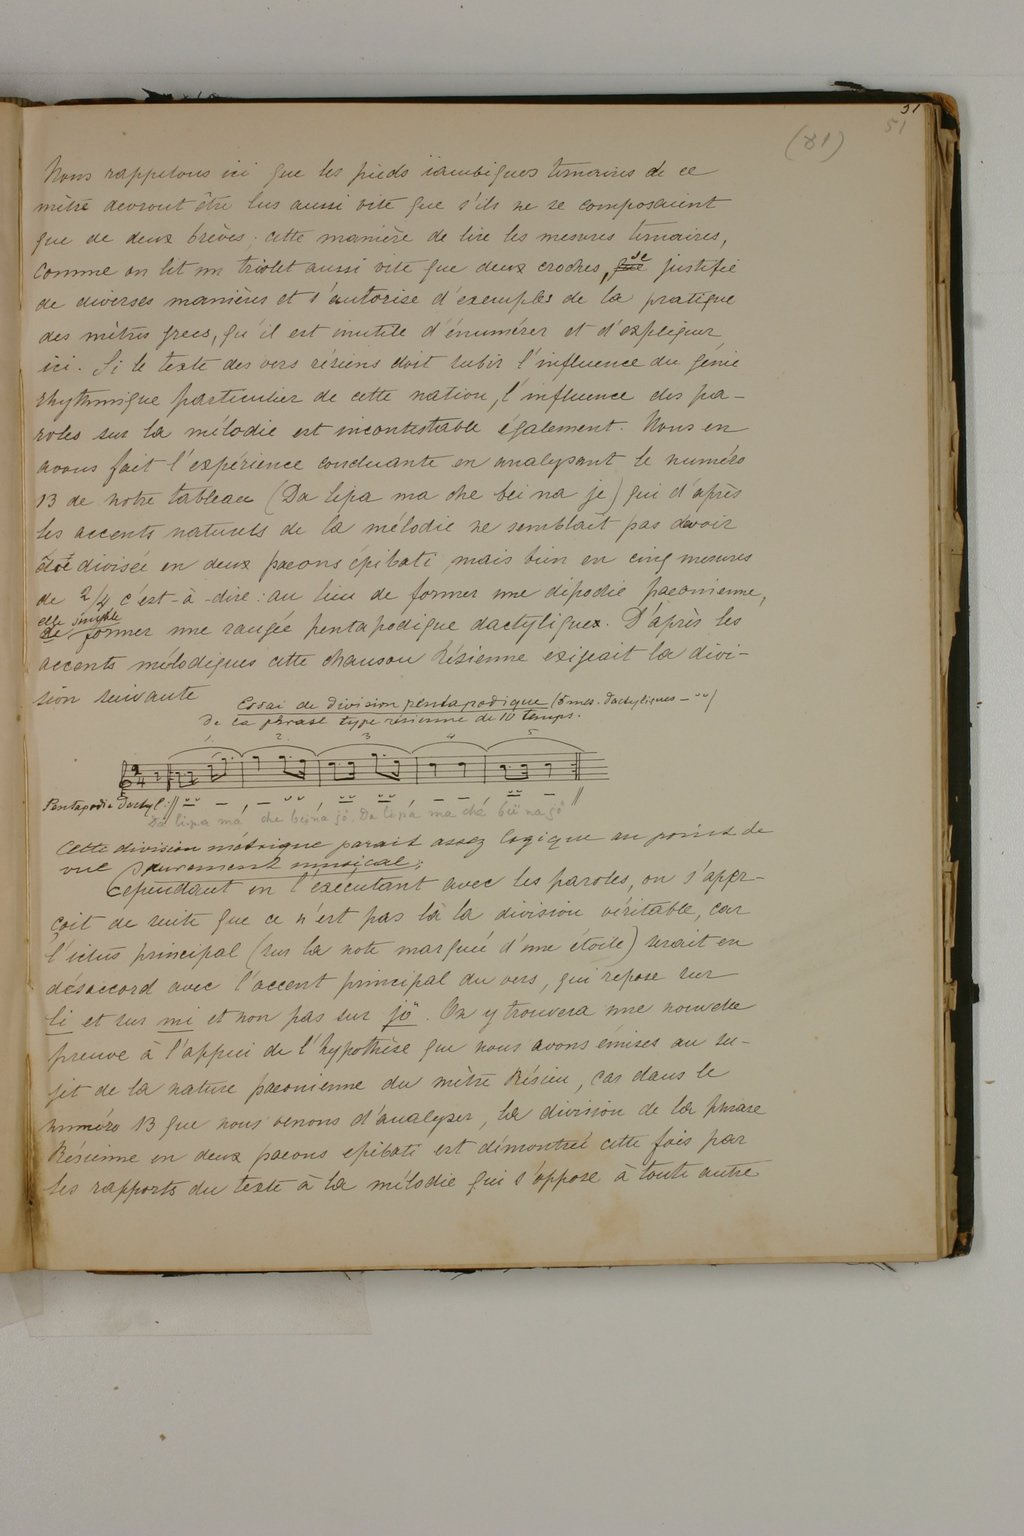 31
51
(81)
Nous rappelons ici que les pieds ïambiques ternaires de ce
mètre devront être lus aussi vite que s'ils ne se composaient
que de deux brèves; cette manière de lire les mesures ternaires,
comme on lit un triolet aussi vite que deux croches, se justifie
de diverses manières et s'autorise d'exemples de la pratique
des mètres grecs, qu'il est inutile d'énumérer et d'expliquer
ici. Si le texte des vers résiens doit subir l'influence du génie
rhythmique particulier de cette nation, l'influence des pa-
roles sur la mélodie est incontestable également. Nous en
avons fait l'expérience concluante en analysant le numéro
13 de notre tableau (Da lipa ma che bei na je) qui d'après
les accents naturels de la mélodie ne semblait pas devoir
être divisée en deux pæons épibati mais bien en cinq mesures
de 2/4 c'est-à-dire: au lieu de former une dipodie paeonienne,
elle semble
de former une rangée pentapodique dactylique. D'après les
accents mélodiques cette chanson Résienne exigeait la divi-
sion suivante
Essai de division pentapodique (5 mes. dactyliques – ᴗᴗ)
De la phrase type résienne de 10 temps.
1. 2. 3 4 5
2/4
Pentapodie dactyl. :// ᴗᴗ – , – ᴗᴗ , ᴗᴗ ᴗᴗ , – – , ᴗᴗ – //
Da lipa ma che beina jö, Da lipa ma ché beï na jö
Cette division métrique parait assez logique au point de
vue purement musical;
Cependant en l'exécutant avec les paroles, on s'aper-
çoit de suite que ce n'est pas là la division véritable, car
l'ictus principal (sur la note marquée d'une étoile) serait en
désaccord avec l'accent principal du vers, qui repose sur
li et sur mi et non pas sur jö. On y trouvera une nouvelle
preuve à l'appui de l'hypothèse que nous avons émises au su-
jet de la nature pæonienne du mètre Résien, car dans le
numéro 13 que nous venons d'analyser, la division de la phrase
Résienne en deux pæons epibati est démontrée cette fois par
les rapports du texte à la mélodie qui s'oppose à toute autre